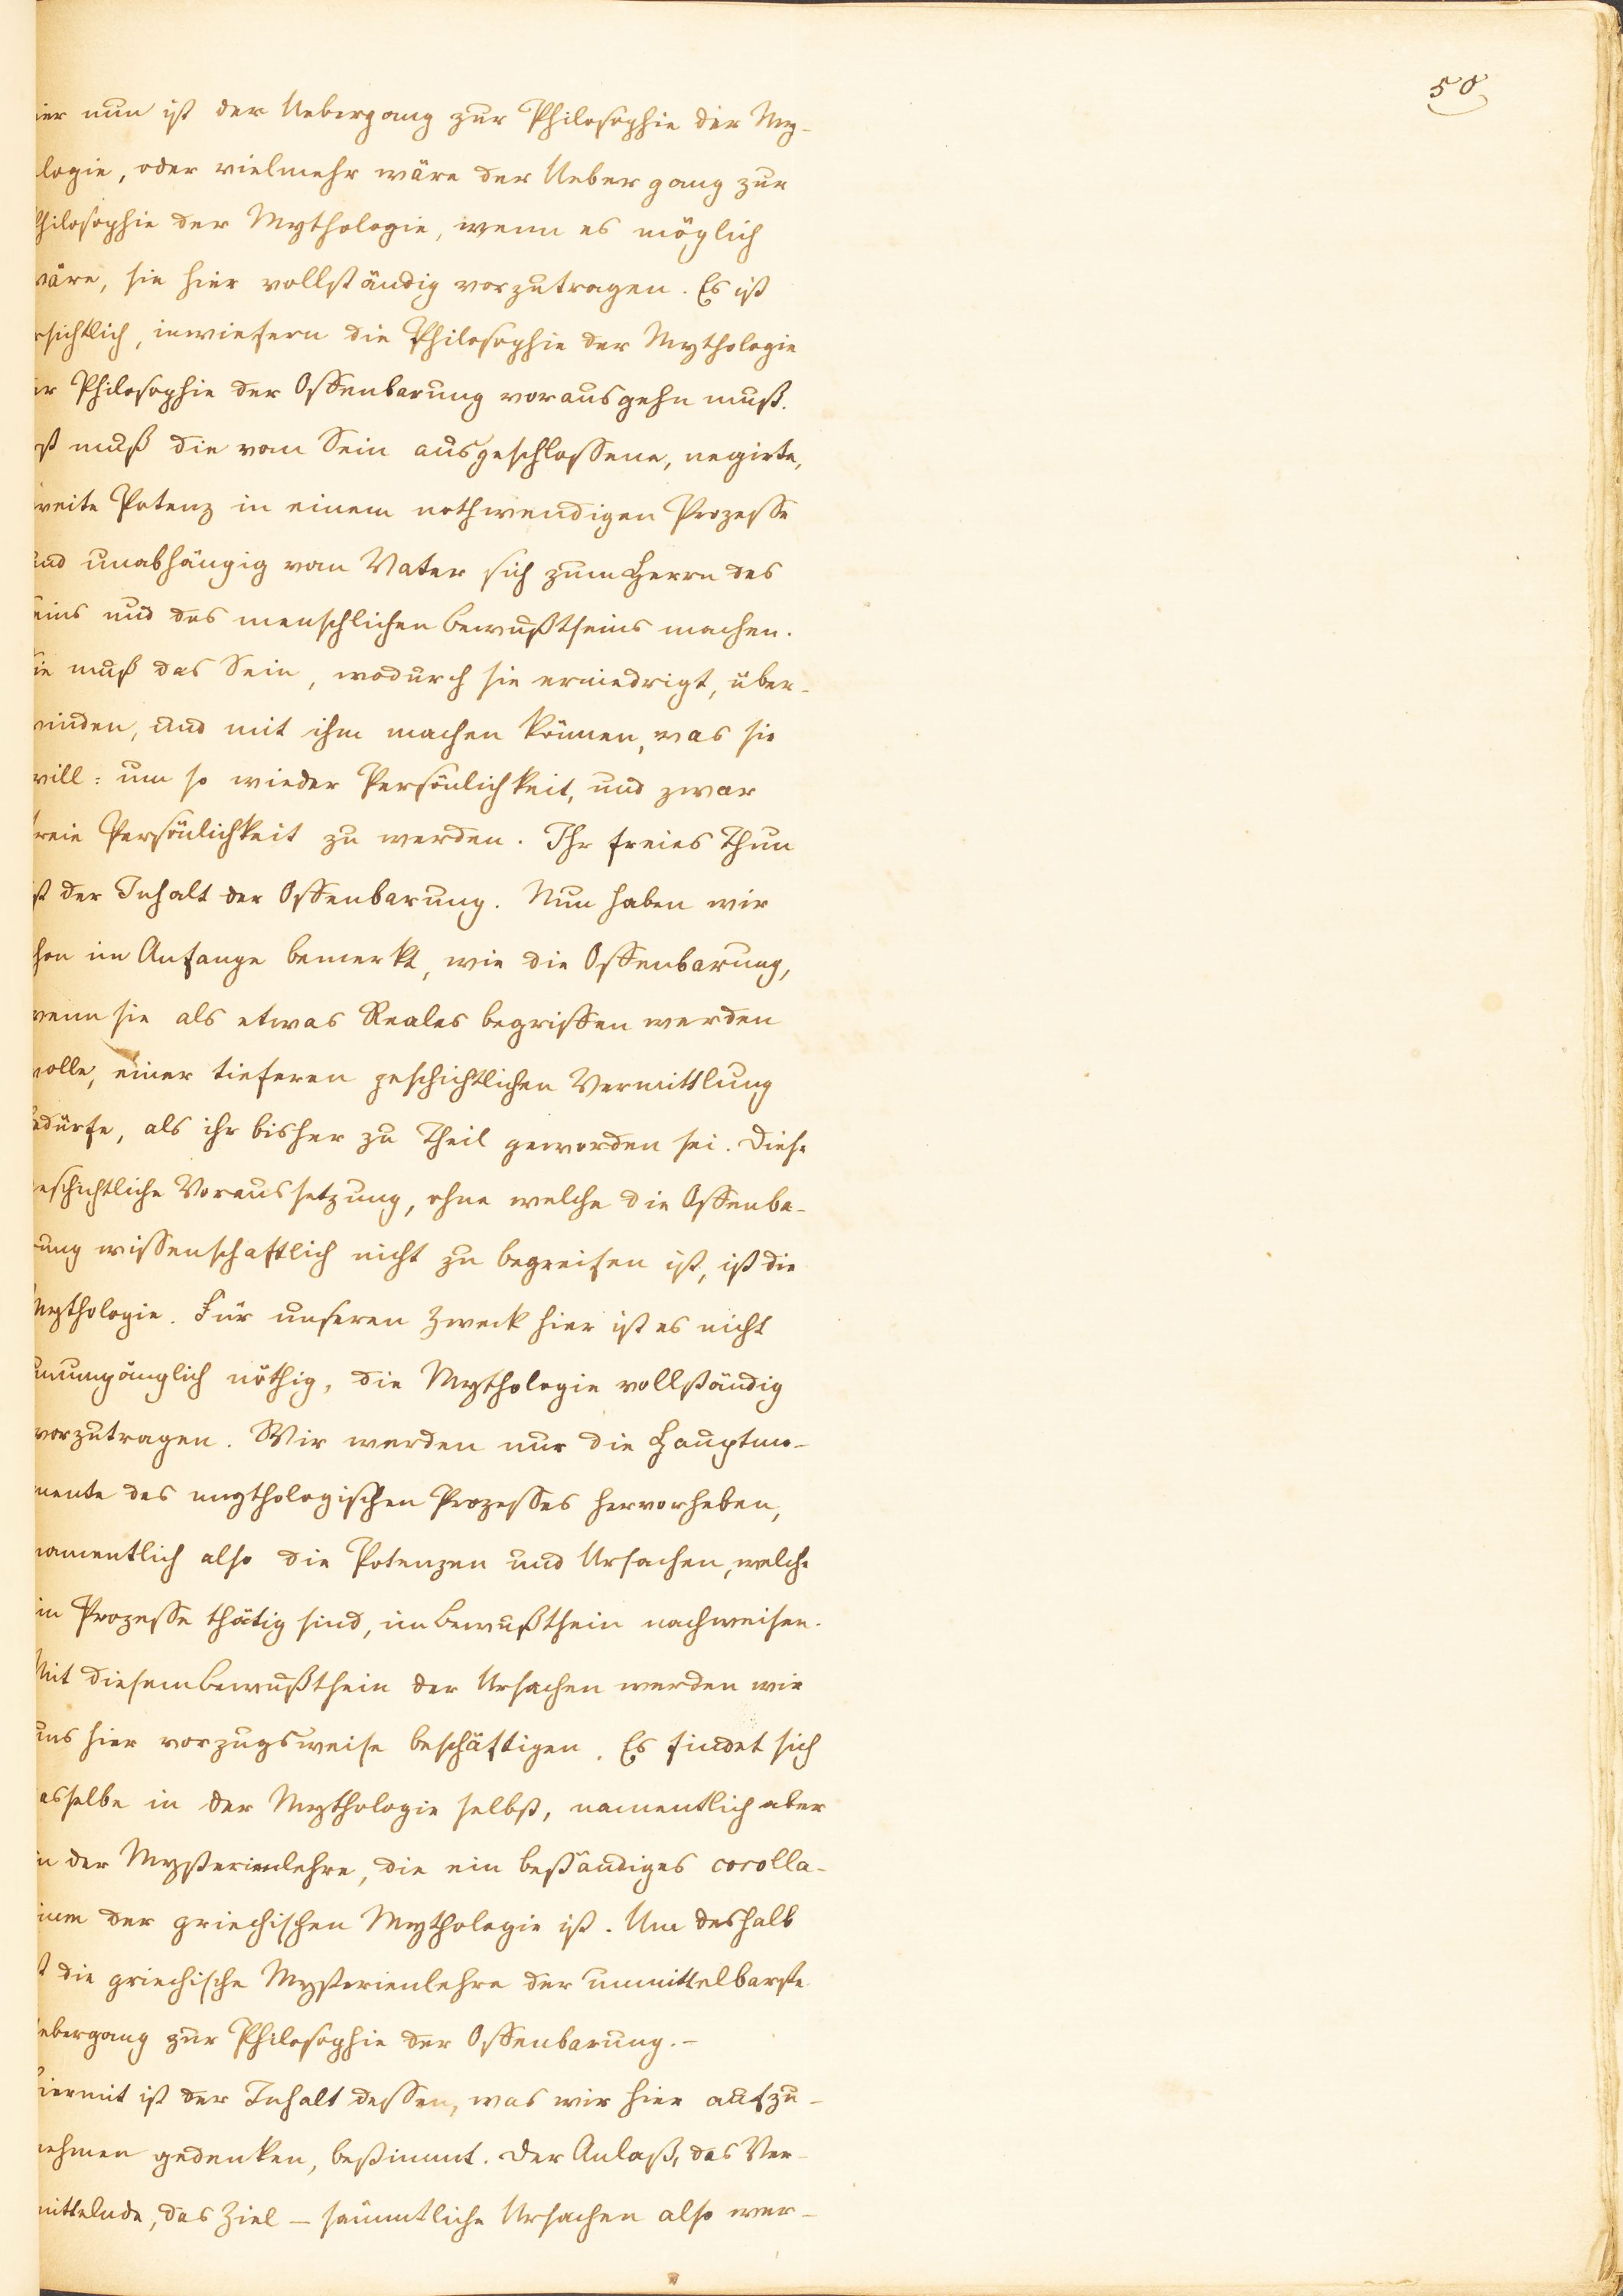 50
ier nun ist der Uebergang zur Philosophie der My-
logie, oder vielmehr wäre der Uebergang zur
hilosophie der Mythologie, wenn es möglich
wäre, sie hier vollständig vorzutragen. Es ist
rsichtlich, inwiefern die Philosophie der Mythologie
er Philosophie der Offenbarung vorausgehn muß.
st muß die vom Sein ausgeschlossene, negirte,
weite Potenz in einem nothwendigen Prozesse
und unabhängig vom Vater sich zum Herrn des
eins und des menschlichen Bewußtseins machen.
ie muß das Sein, wodurch sie erniedrigt, über-
winden, und mit ihm machen können, was sie
will: um so wieder Persönlichkeit, und zwar
freie Persönlichkeit zu werden. Ihr freies Thun
st der Inhalt der Offenbarung. Nun haben wir
hon im Anfange bemerkt, wie die Offenbarung,
wenn sie als etwas Reales begriffen werden
wolle, einer tieferen geschichtlichen Vermittlung
bedürfe, als ihr bisher zu Theil geworden sei. Diese
eschichtliche Voraussetzung, ohne welche die Offenba-
rung wissenschaftlich nicht zu begreifen ist, ist die
Mythologie. Für unseren Zweck hier ist es nicht
unumgänglich nöthig, die Mythologie vollständig
vorzutragen. Wir werden nur die Hauptmo-
mente des mythologischen Prozesses hervorheben,
namentlich also die Potenzen und Ursachen, welche
im Prozesse thätig sind, im Bewußtsein nachweisen.
Mit diesem Bewußtsein der Ursachen werden wir
uns hier vorzugsweise beschäftigen. Es findet sich
asselbe in der Mythologie selbst, namentlich aber
in der Mysterienlehre, die ein beständiges corolla-
ium der griechischen Mythologie ist. Um deshalb
t die griechische Mysterienlehre der unmittelbarste
ebergang zur Philosophie der Offenbarung.-
iermit ist der Inhalt dessen, was wir hier aufzu-
nehmen gedenken, bestimmt. Der Anlaß, das Ver-
mittelnde, das Ziel - sämmtliche Ursachen also wer-